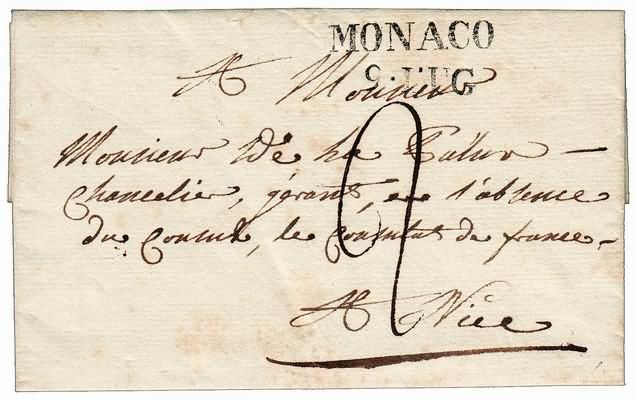 MONACO
9. LUG
A Monsieur
Monsieur De La
Chancelier, gérant, en l'absence
du Consul, le Consulat de france
2
A Nice